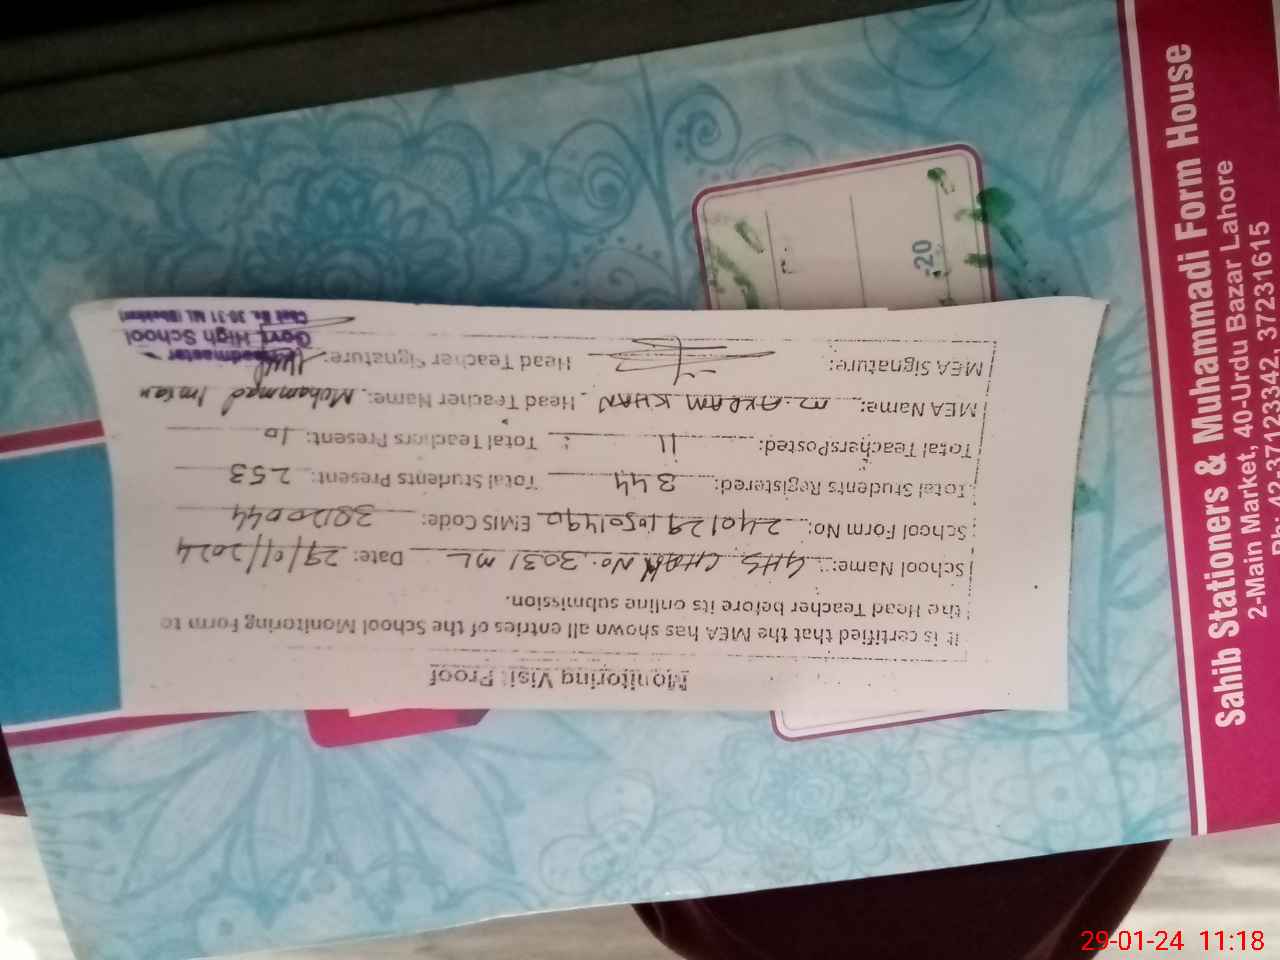 Monitoring Visit Proof
It is certified that the MEA has shown all entries of the School Monitoring Form to
the Head Teacher before its online submission.
School Name: GHS, CHAK No. 30.31 ML Date: 29/01/2024
School Form No: 24012910501490 EMIS Code: 38120044
Total Students Registered: 344 Total Students Present: 253
Total Teachers Posted: 11 Total Teachers Present: 10
MEA Name: M. AKRAM KHAN Head Teacher Name: Muhammad Imran
MEA Signature: Head Teacher Signature:
Headmaster
Govt High School
Chak No. 30-31 ML (Bhakkar)
-20
Sahib Stationers & Muhammadi Form House
2-Main Market, 40-Urdu Bazar Lahore
Ph: 42-37123342, 37231615
29-01-24 11:18